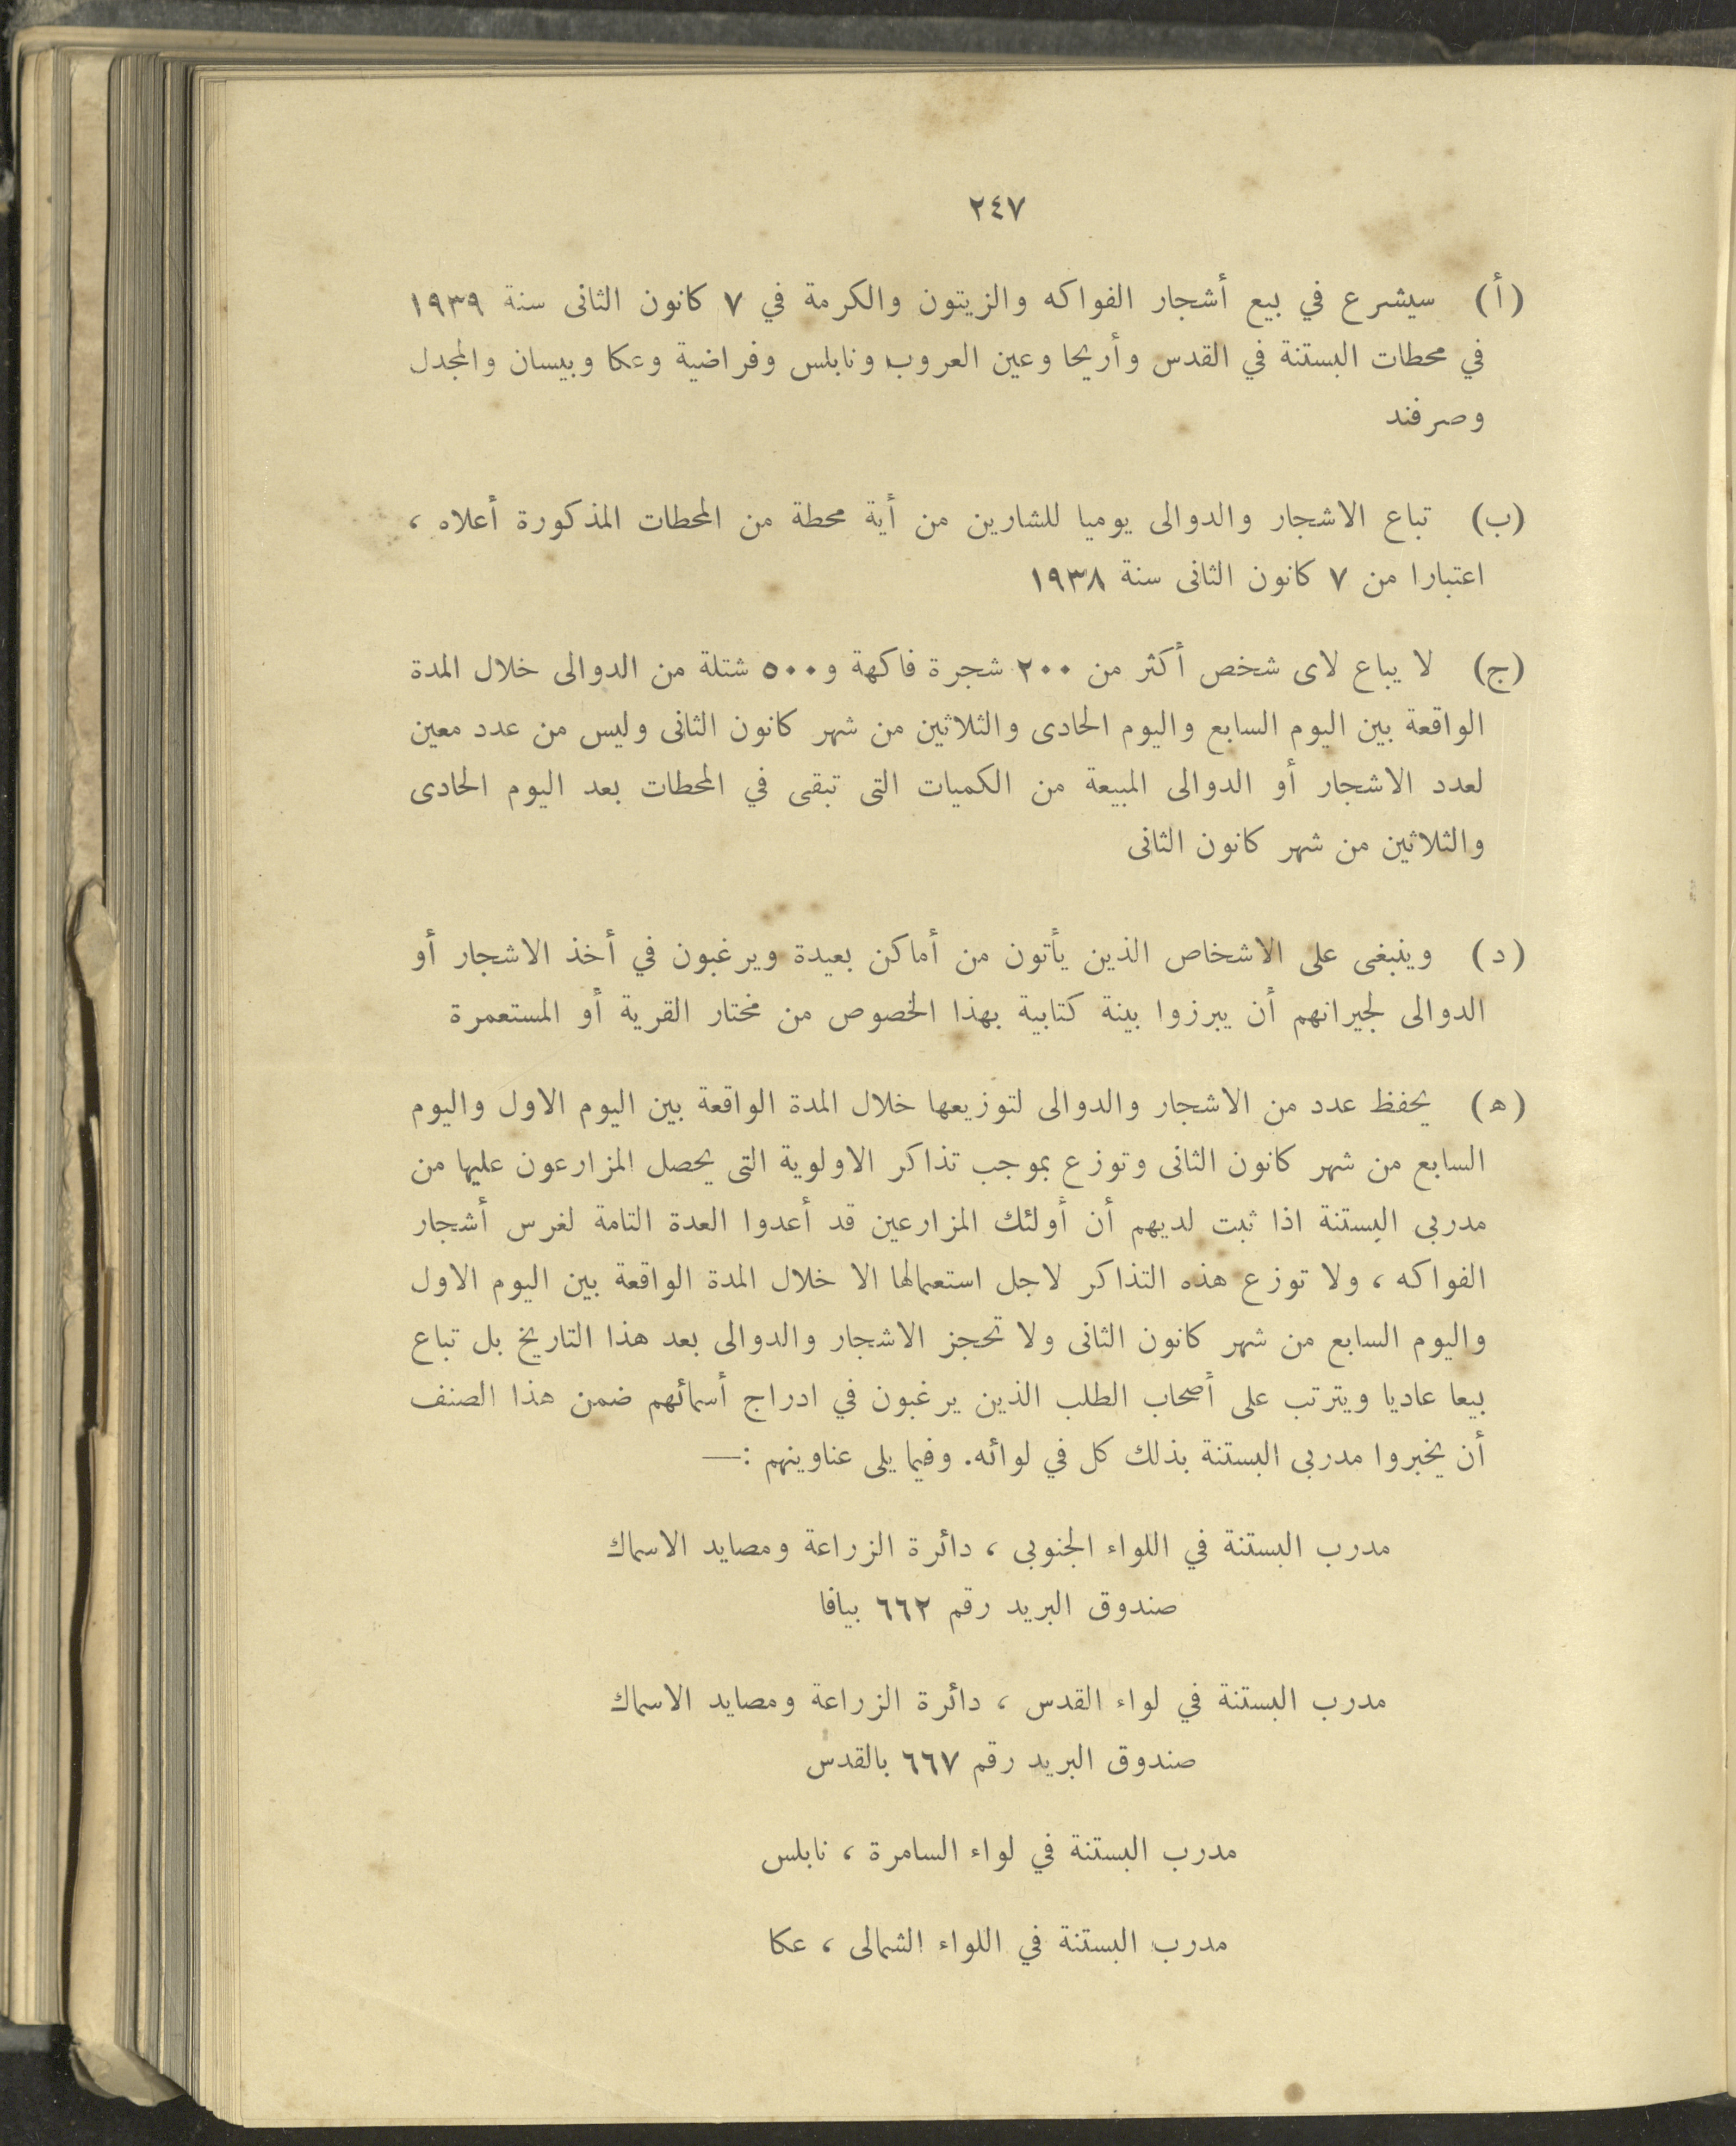 ٢٤٧
(أ) سيشرع في بيع أشجار الفواكه والزيتون والكرمة في ٧ كانون الثانى سنة ١٩٣٩
في محطات البستنة في القدس وأريحا وعين العروب ونابلس وفراضية وعكا وبيسان والمجدل
وصرفند
(ب) تباع الاشجار والدوالى يوميا للشارين من أية محطة من المحطات المذكورة أعلاه ،
اعتبارا من ٧ كانون الثانى سنة ١٩٣٨
(ج) لا يباع لاى شخص أكثر من ٢٠٠ شجرة فاكهة و٥٠٠ شتلة من الدوالى خلال المدة
الواقعة بين اليوم السابع واليوم الحادى والثلاثين من شهر كانون الثانى وليس من عدد معين
لعدد الاشجار أو الدوالى المبيعة من الكميات التى تبقى في المحطات بعد اليوم الحادى
والثلاثين من شهر كانون الثانى
(د) وينبغى على الاشخاص الذين يأتون من أماكن بعيدة ويرغبون في أخذ الاشجار أو
الدوالى لجيرانهم أن يبرزوا بينة كتابية بهذا الخصوص من مختار القرية أو المستعمرة
(ه) يحفظ عدد من الاشجار والدوالى لتوزيعها خلال المدة الواقعة بين اليوم الاول واليوم
السابع من شهر كانون الثانى وتوزع بموجب تذاكر الاولوية التى يحصل المزارعون عليها من
مدربى البستنة اذا ثبت لديهم أن أولئك المزارعين قد أعدوا العدة التامة لغرس أشجار
الفواكه ، ولا توزع هذه التذاكر لاجل استعمالها الا خلال المدة الواقعة بين اليوم الاول
واليوم السابع من شهر كانون الثانى ولا تحجز الاشجار والدوالى بعد هذا التاريخ بل تباع
بيعا عاديا ويترتب على أصحاب الطلب الذين يرغبون في ادراج أسمائهم ضمن هذا الصنف
أن يخبروا مدربى البستنة بذلك كل في لوائه. وفيما يلى عناوينهم :—
مدرب البستنة في اللواء الجنوبى ، دائرة الزراعة ومصايد الاسماك
صندوق البريد رقم ٦٦٢ بيافا
مدرب البستنة في لواء القدس ، دائرة الزراعة ومصايد الاسماك
صندوق البريد رقم ٦٦٧ بالقدس
مدرب البستنة في لواء السامرة ، نابلس
مدرب البستنة في اللواء الشمالى ، عكا